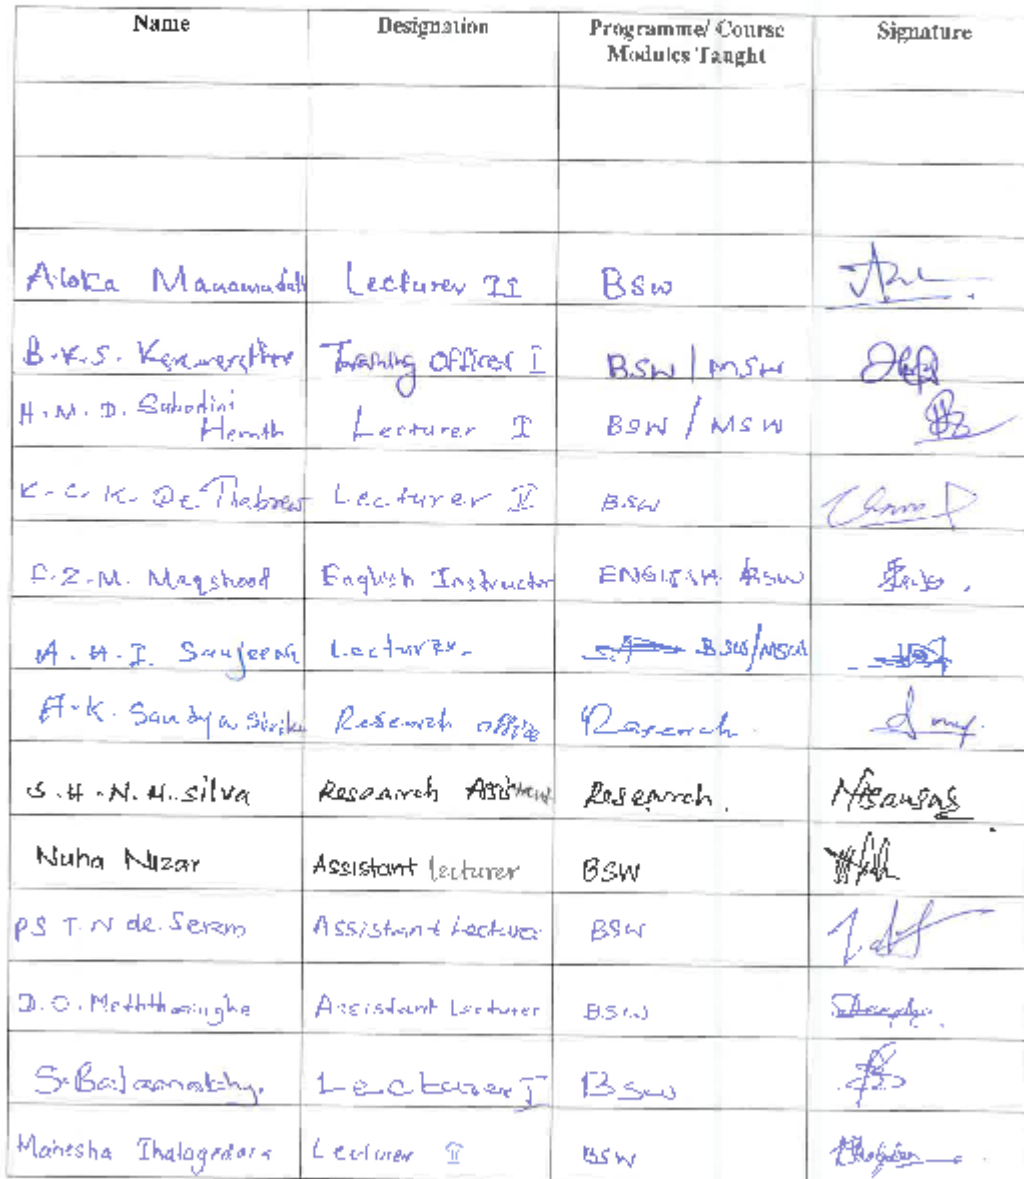 Name Designation Programme/ Course Signature
Modules Taught
Aloka Manamudali Lecturer II BSW
B.K.S. Training Officer I BSW / MSW
H.M.D. Subodini
Herath Lecturer I BSW / MSW
K.C.K. De Thabrew Lecturer II BSW
F.Z.M. Maqshood English Instructor ENGLISH BSW
A.H.I. Sanjeewa Lecturer BSW/MSW
A.K. Sandya Research office Research
S.H.N.H. Silva Research Assistant Research.
Nuha Nizar Assistant lecturer BSW
P.S T.N de. Seram Assistant Lecturer BSW
D.O. Meththasinghe Assistant Lecturer BSW
S. Lecturer I BSW
Manesha Ihalagedara Lecturer II BSW